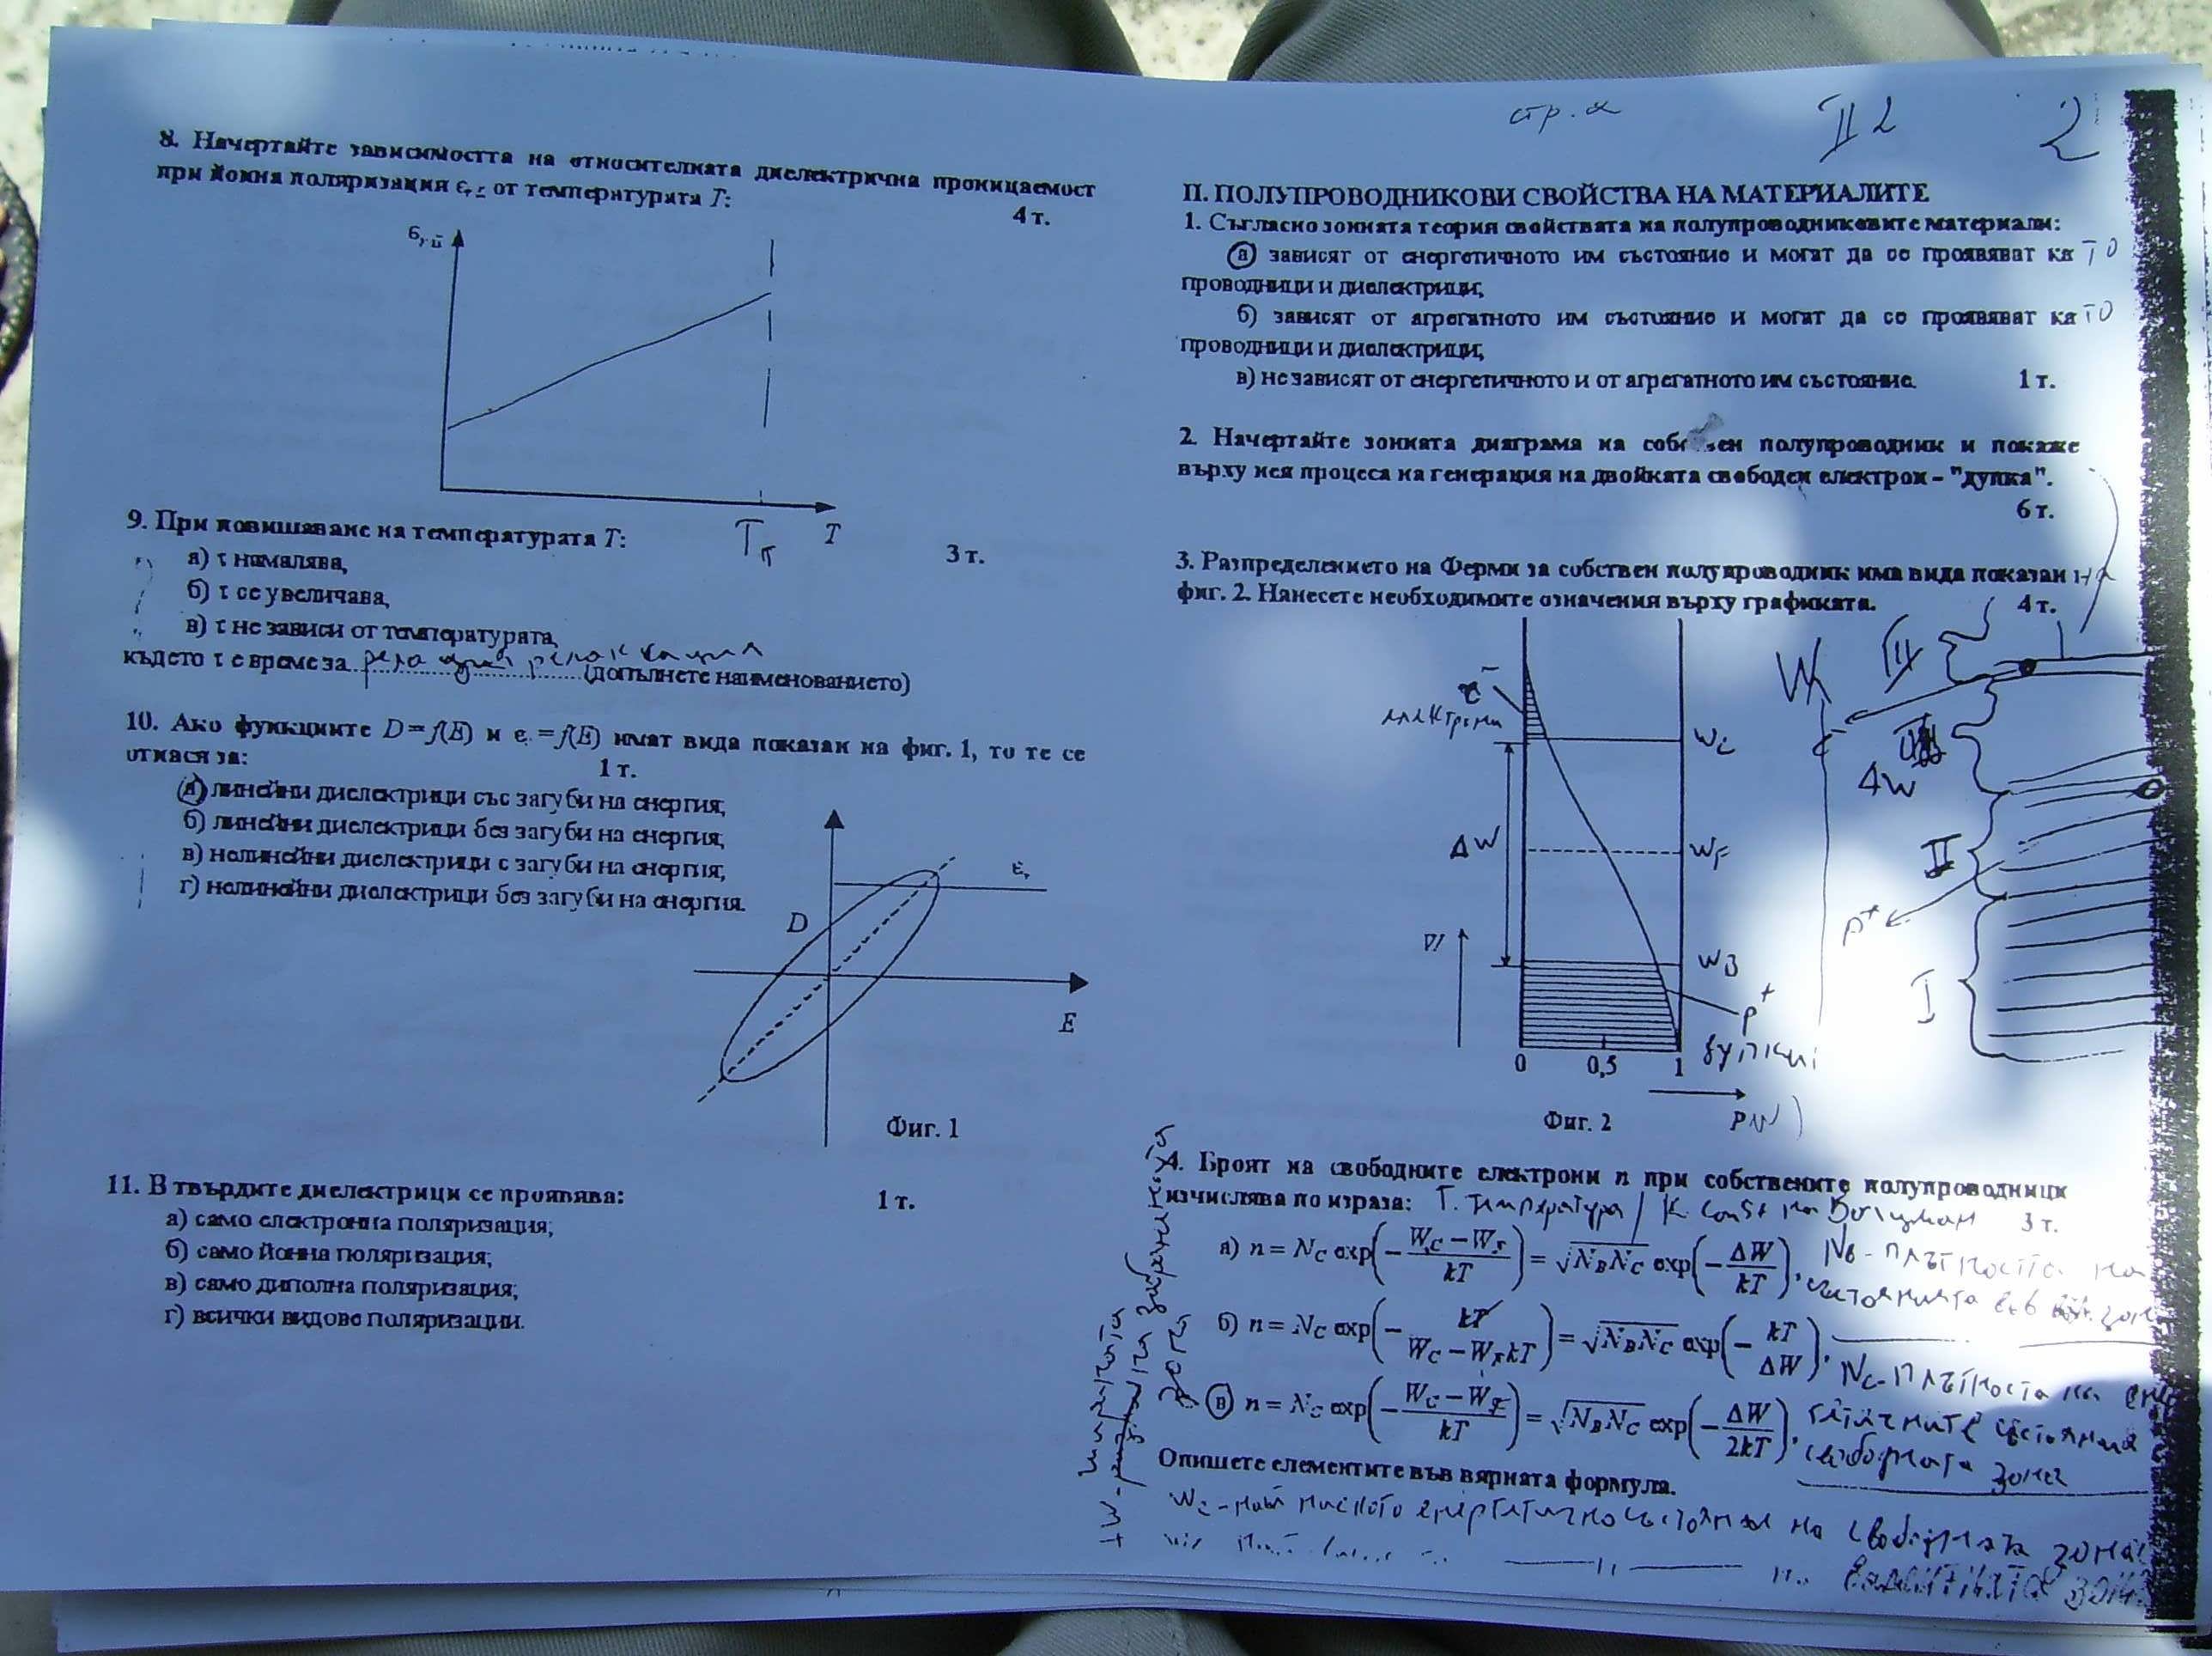 стр. 2
II 2
2
8. Начертайте зависимостта на относителната диелектрична проницаемост
при йонна поляризация εr от температурата T:
4 т.
T
Tп
9. При повишаване на температурата T:
3 т.
а) τ намалява,
б) τ се увеличава,
в) τ не зависи от температурата,
където τ е време за релаксация (допълнете наименованието)
10. Ако функциите D = f(E) и εr = f(E) имат вида показан на фиг. 1, то те се
отнася за:
1 т.
а) линейни диелектрици със загуби на енергия;
б) линейни диелектрици без загуби на енергия;
в) нелинейни диелектрици с загуби на енергия;
г) нелинейни диелектрици без загуби на енергия.
εr
D
E
Фиг. 1
11. В твърдите диелектрици се проявява:
1 т.
а) само електронна поляризация;
б) само йонна поляризация;
в) само диполна поляризация;
г) всички видове поляризации.
II. ПОЛУПРОВОДНИКОВИ СВОЙСТВА НА МАТЕРИАЛИТЕ
1. Съгласно зонната теория свойствата на полупроводниковите материали:
а) зависят от енергетичното им състояние и могат да се проявяват като
проводници и диелектрици;
б) зависят от агрегатното им състояние и могат да се проявяват като
проводници и диелектрици;
в) не зависят от енергетичното и от агрегатното им състояние.
1 т.
2. Начертайте зонната диаграма на собствен полупроводник и покаже
върху нея процеса на генерация на двойката свободен електрон - "дупка".
6 т.
3. Разпределението на Ферми за собствен полупроводник има вида показан на
фиг. 2. Нанесете необходимите означения върху графиката.
4 т.
W
III
ΔW
II
p⁺
I
e⁻
електрони
Wc
ΔW
WF
W
WB
p⁺
дупки
0 0,5 1
P(W)
Фиг. 2
4. Броят на свободните електрони n при собствените полупроводници
изчислява по израза: T. температура / K const на Болцман
3 т.
а) n = NC exp(−(WC − WF)/kT) = √(NBNC) exp(−ΔW/kT),
NB - плътността на
състоянията
б) n = NC exp(−kT/(WC − WFkT)) = √(NBNC) exp(−kT/ΔW),
NC - плътността на
в) n = NC exp(−(WC − WF)/kT) = √(NBNC) exp(−ΔW/2kT),
състояния
свободната зона
Опишете елементите във вярната формула.
Wc - най ниското енергетично състояние на свободната зона
ΔW - широчината
на забранената
зона